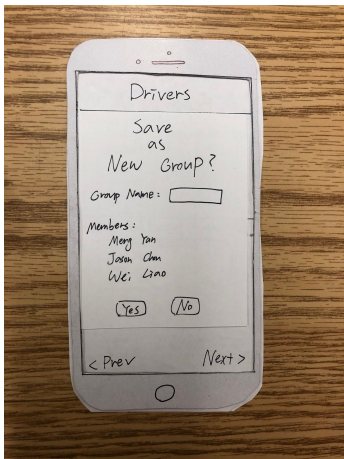 Drivers
Save
as
New Group?
Group Name:
Members:
Meng Yan
Jason Chu
Wei Liao
Yes No
< Prev Next >